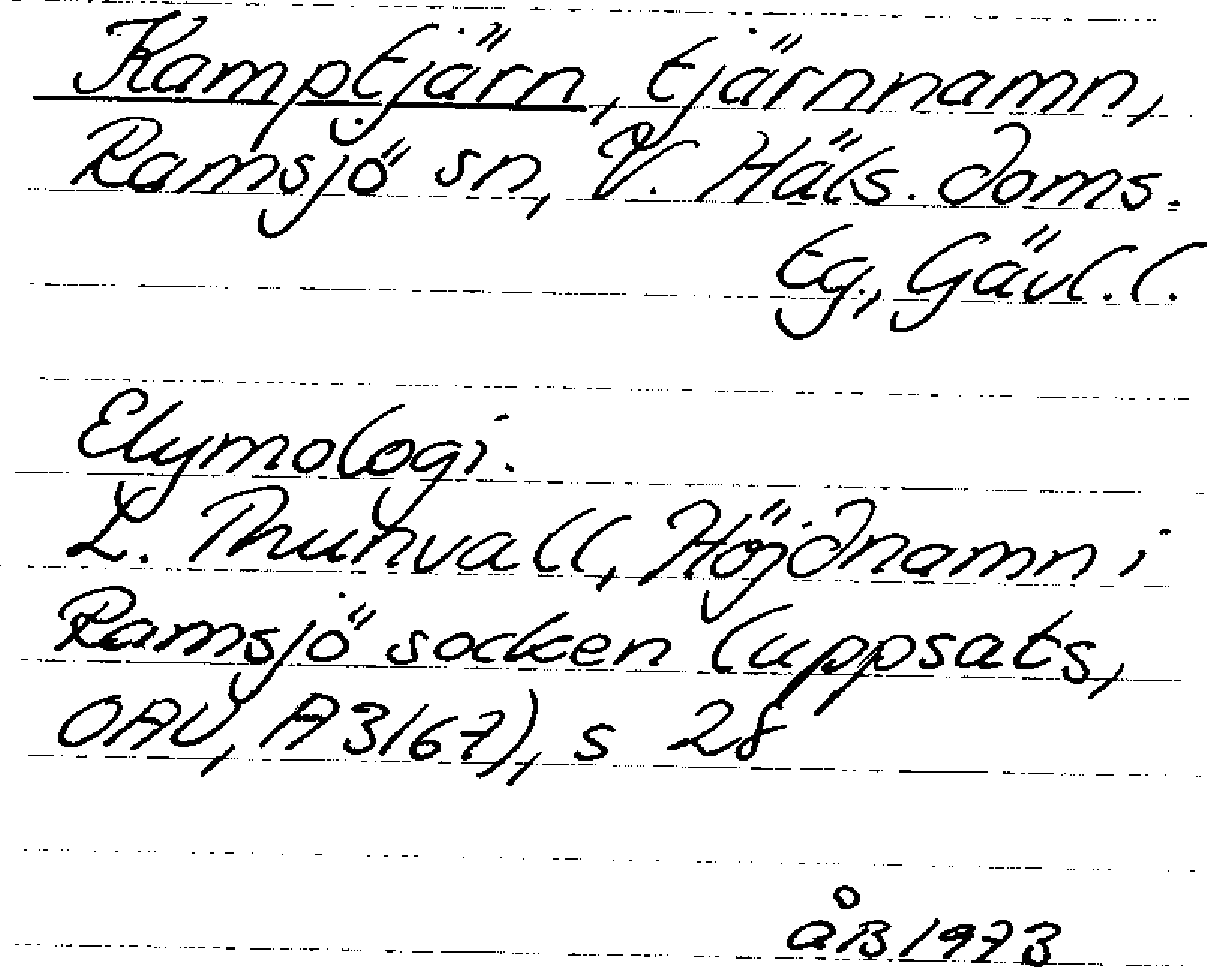 Kamptjärn, tjärnnamn,
Ramsjö sn, V. Häls. doms.
tg., Gävl. l.
Etymologi.
L. Thunvall, Höjdnamn i
Ramsjö socken (uppsats,
OAU, A3/67), s 28
åB 1973